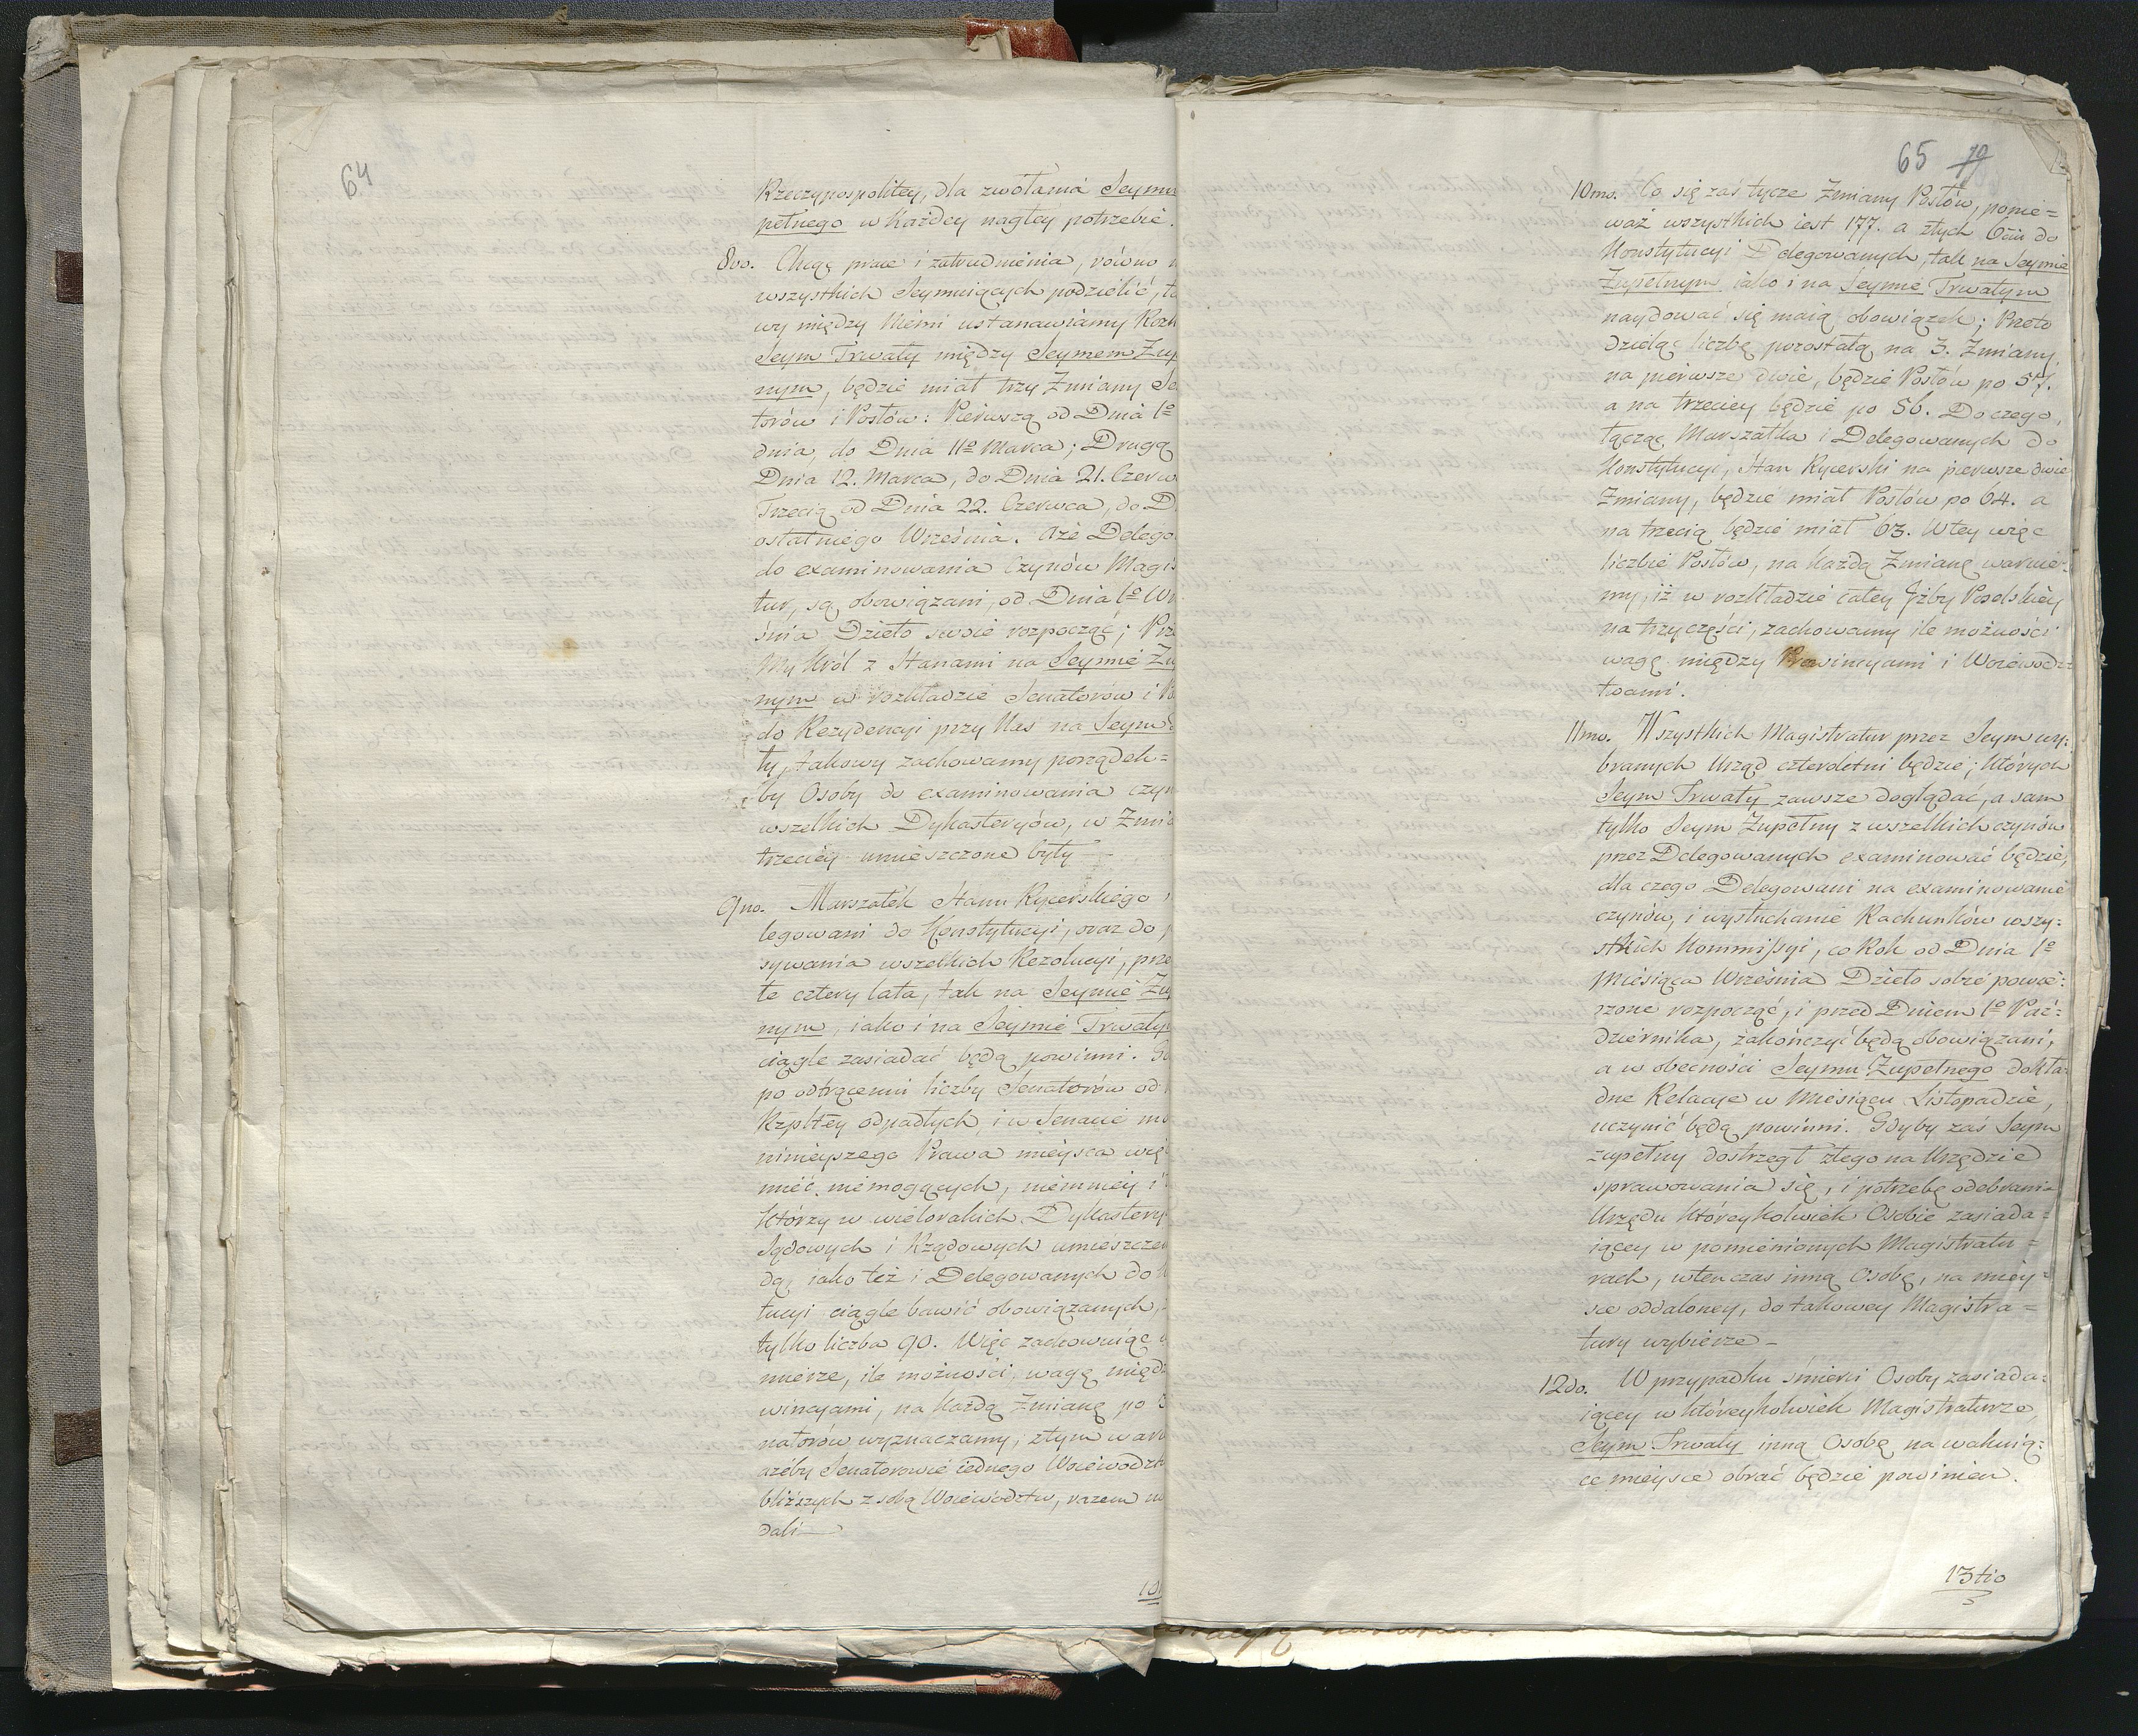 64
Rzeczypospolitey, dla zwołania Seymu
pełnego w każdey nagłey potrzebie.
8vo. Chcąc prace i zatrudnienia, równo
wszystkich Seymuiących podzielić, ta
wy między Niemi ustanawiamy Rozk
Seym Trwały między Seymem Zup
nym, będzie miał trzy Zmiany Se
torów i Posłów: Pierwszą od Dnia 1º
dnia, do Dnia 11º Marca; Drugą
Dnia 12. Marca, do Dnia 21. Czerw
Trzecią od Dnia 22. Czerwca, do D
ostatniego Września. Aże Delego
do examinowania Czynów Magis
tur, są obowiązani, od Dnia 1º Wr
śnia Dzieło swoie rozpocząć; Prze
My Król z Stanami na Seymie Zu
nym w rozkładzie Senatorów i Po
do Rezydencyi przy Nas na Seym
ły, takowy zachowamy porządek=
by Osoby do examinowania czyn
wszelkich Dykasteryów, w Zmia
trzeciey umieszczone były —
9no. Marszałek Stanu Rycerskiego
legowani do Konstytucyi, oraz do
sywania wszelkich Rezolucyi, prze
te cztery lata, tak na Seymie Zu
nym, iako i na Seymie Trwały
ciągle zasiadać będą powinni. G
po odtrąceniu liczby Senatorów od
Rzpltey odpadłych, i w Senacie mo
ninieyszego Prawa mieysca wię
mieć niemogących, niemniey i
którzy w wielorakich Dykastery
Sądowych i Rządowych umieszcze
dą, iako też i Delegowanych do
tucyi ciągle bawić obowiązanych,
tylko liczba 90. Więc zachowuiąc
mierze, ile możności, wagę międ
wincyami, na każdą Zmianę po 3
natorów wyznaczamy, z tym war
ażeby Senatorowie iednego Woiewodz
bliższych z sobą Woiewództw, razem
dali —
10
65 79
10mo. Co się zaś tycze Zmiany Posłów, ponie=
waż wszystkich iest 177. a z tych 6ciu do
Konstytucyi Delegowanych, tak na Seymie
Zupełnym iako i na Seymie Trwałym
naydować się maią obowiązek; Przeto
dzieląc liczbę pozostałą na 3. Zmiany,
na pierwsze dwie, będzie Posłów po 57.
a na trzeciey będzie po 56. Do czego,
łącząc Marszałka i Delegowanych do
Konstytucyi, Stan Rycerski na pierwsze dwie
Zmiany, będzie miał Posłów po 64. a
na trzecią będzie miał 63. W tey więc
liczbie Posłów, na każdą Zmianę waruie=
my, iż w rozkładzie całey Jzby Poselskiey
na trzy części, zachowamy ile możności
wagę między Prowincyami i Woiewodz
twami.
11mo. Wszystkich Magistratur przez Seym wy=
branych Urząd czteroletni będzie; których
Seym Trwały zawsze doglądać, a sam
tylko Seym Zupełny z wszelkich czynów
przez Delegowanych examinować będzie,
dla czego Delegowani na examinowanie
czynów, i wysłuchanie Rachunków wszy=
stkich Kommissyi, co Rok od Dnia 1º
Miesiąca Września Dzieło sobie powie=
rzone rozpocząć, i przed Dniem 1º Paź=
dziernika, zakończyć będą obowiązani,
a w obecności Seymu Zupełnego dokła=
dne Relacye w Miesiącu Listopadzie,
uczynić będą powinni. Gdyby zaś Seym
zupełny dostrzegł złego na Urzędzie
sprawowania się, i potrzebę odebrania
Urzędu któreykolwiek Osobie zasiada=
iącey w pomienionych Magistratu=
rach, wtenczas inną Osobę, na miey=
sce oddaloney, do takowey Magistra=
tury wybierze —
12do. W przypadku śmierci Osoby zasiada=
iącey w któreykolwiek Magistraturze,
Seym Trwały inną Osobę na wakuią=
ce mieysce obrać będzie powinien.
13tio